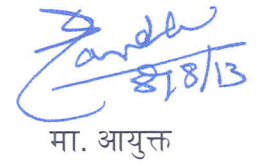 8/8/13
मा. आयुक्त